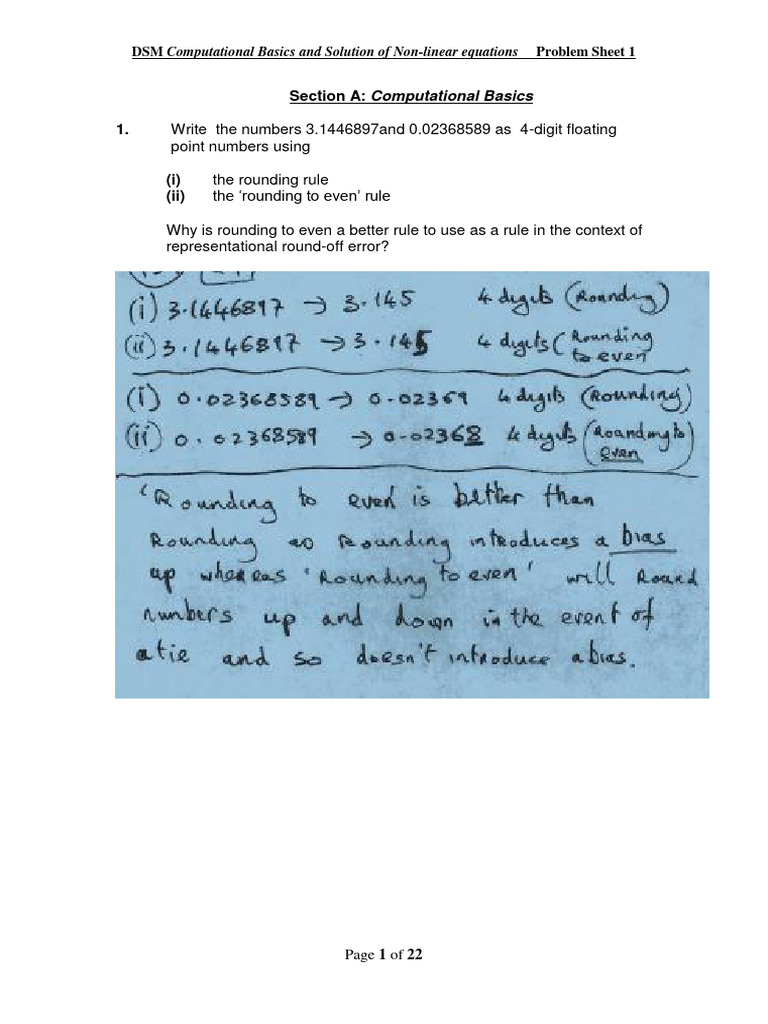 DSM Computational Basics and Solution of Non-linear equations Problem Sheet 1
Section A: Computational Basics
1. Write the numbers 3.1446897and 0.02368589 as 4-digit floating
point numbers using
(i) the rounding rule
(ii) the ‘rounding to even’ rule
Why is rounding to even a better rule to use as a rule in the context of
representational round-off error?
(i) 3.1446897 → 3.145 4 digits (Rounding)
(ii) 3.1446897 → 3.145 4 digits (Rounding
to even
(i) 0.02368589 → 0.02369 4 digits (Rounding)
(ii) 0.02368589 → 0.02368 4 digits (Rounding to
even)
‘Rounding to even is better than
Rounding as Rounding introduces a bias
up whereas ‘Rounding to even’ will Round
numbers up and down in the event of
a tie and so doesn't introduce a bias.
Page 1 of 22